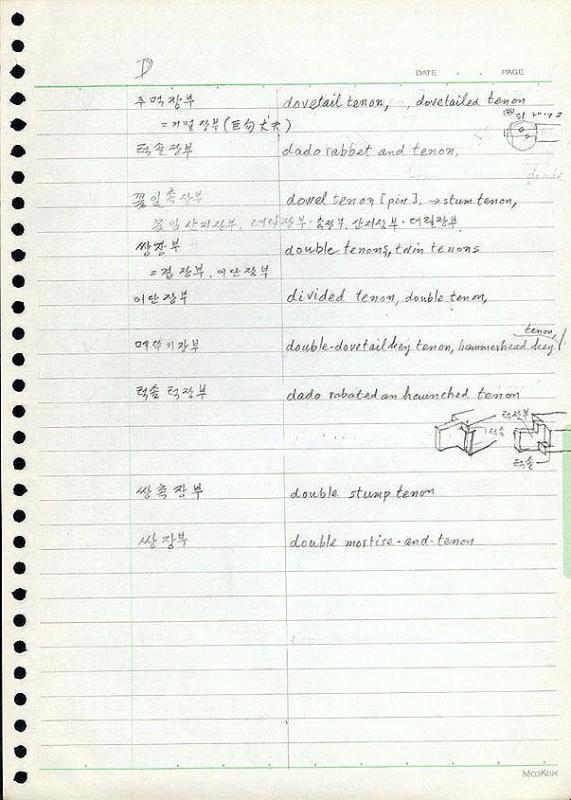 D
DATE . . PAGE
주먹장부 dovetail tenon, dovetailed tenon
턱솔장부 dado rabbet and tenon.
꽂임촉장부 dowel tenon [pin]. → stum tenon,
쌍장부 double tenons, twin tenons
= 겹장부, 이단장부
이단장부 divided tenon, double tenon,
tenon,
메뚜기장부 double-dovetail key tenon, hammerhead key
턱솔턱장부 dado rabated an haunched tenon
턱장부
턱솔
턱솔
쌍촉장부 double stump tenon
쌍장부 double mortise-and-tenon